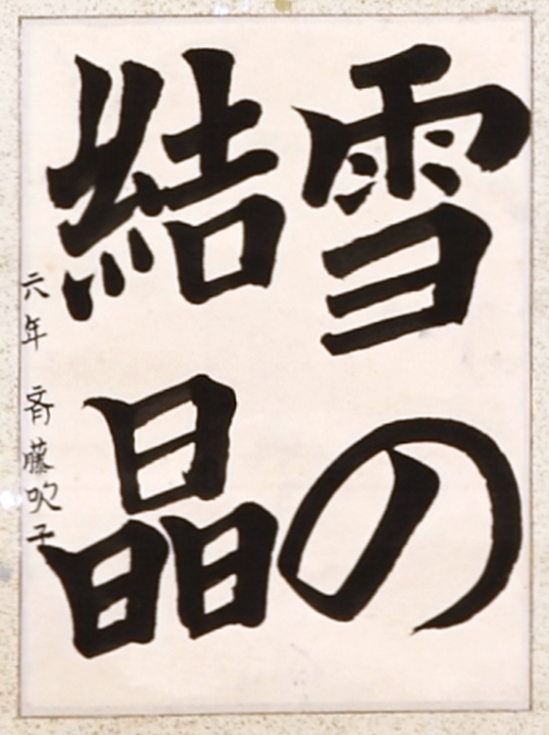 雪の
結晶
六年 斉藤吹子